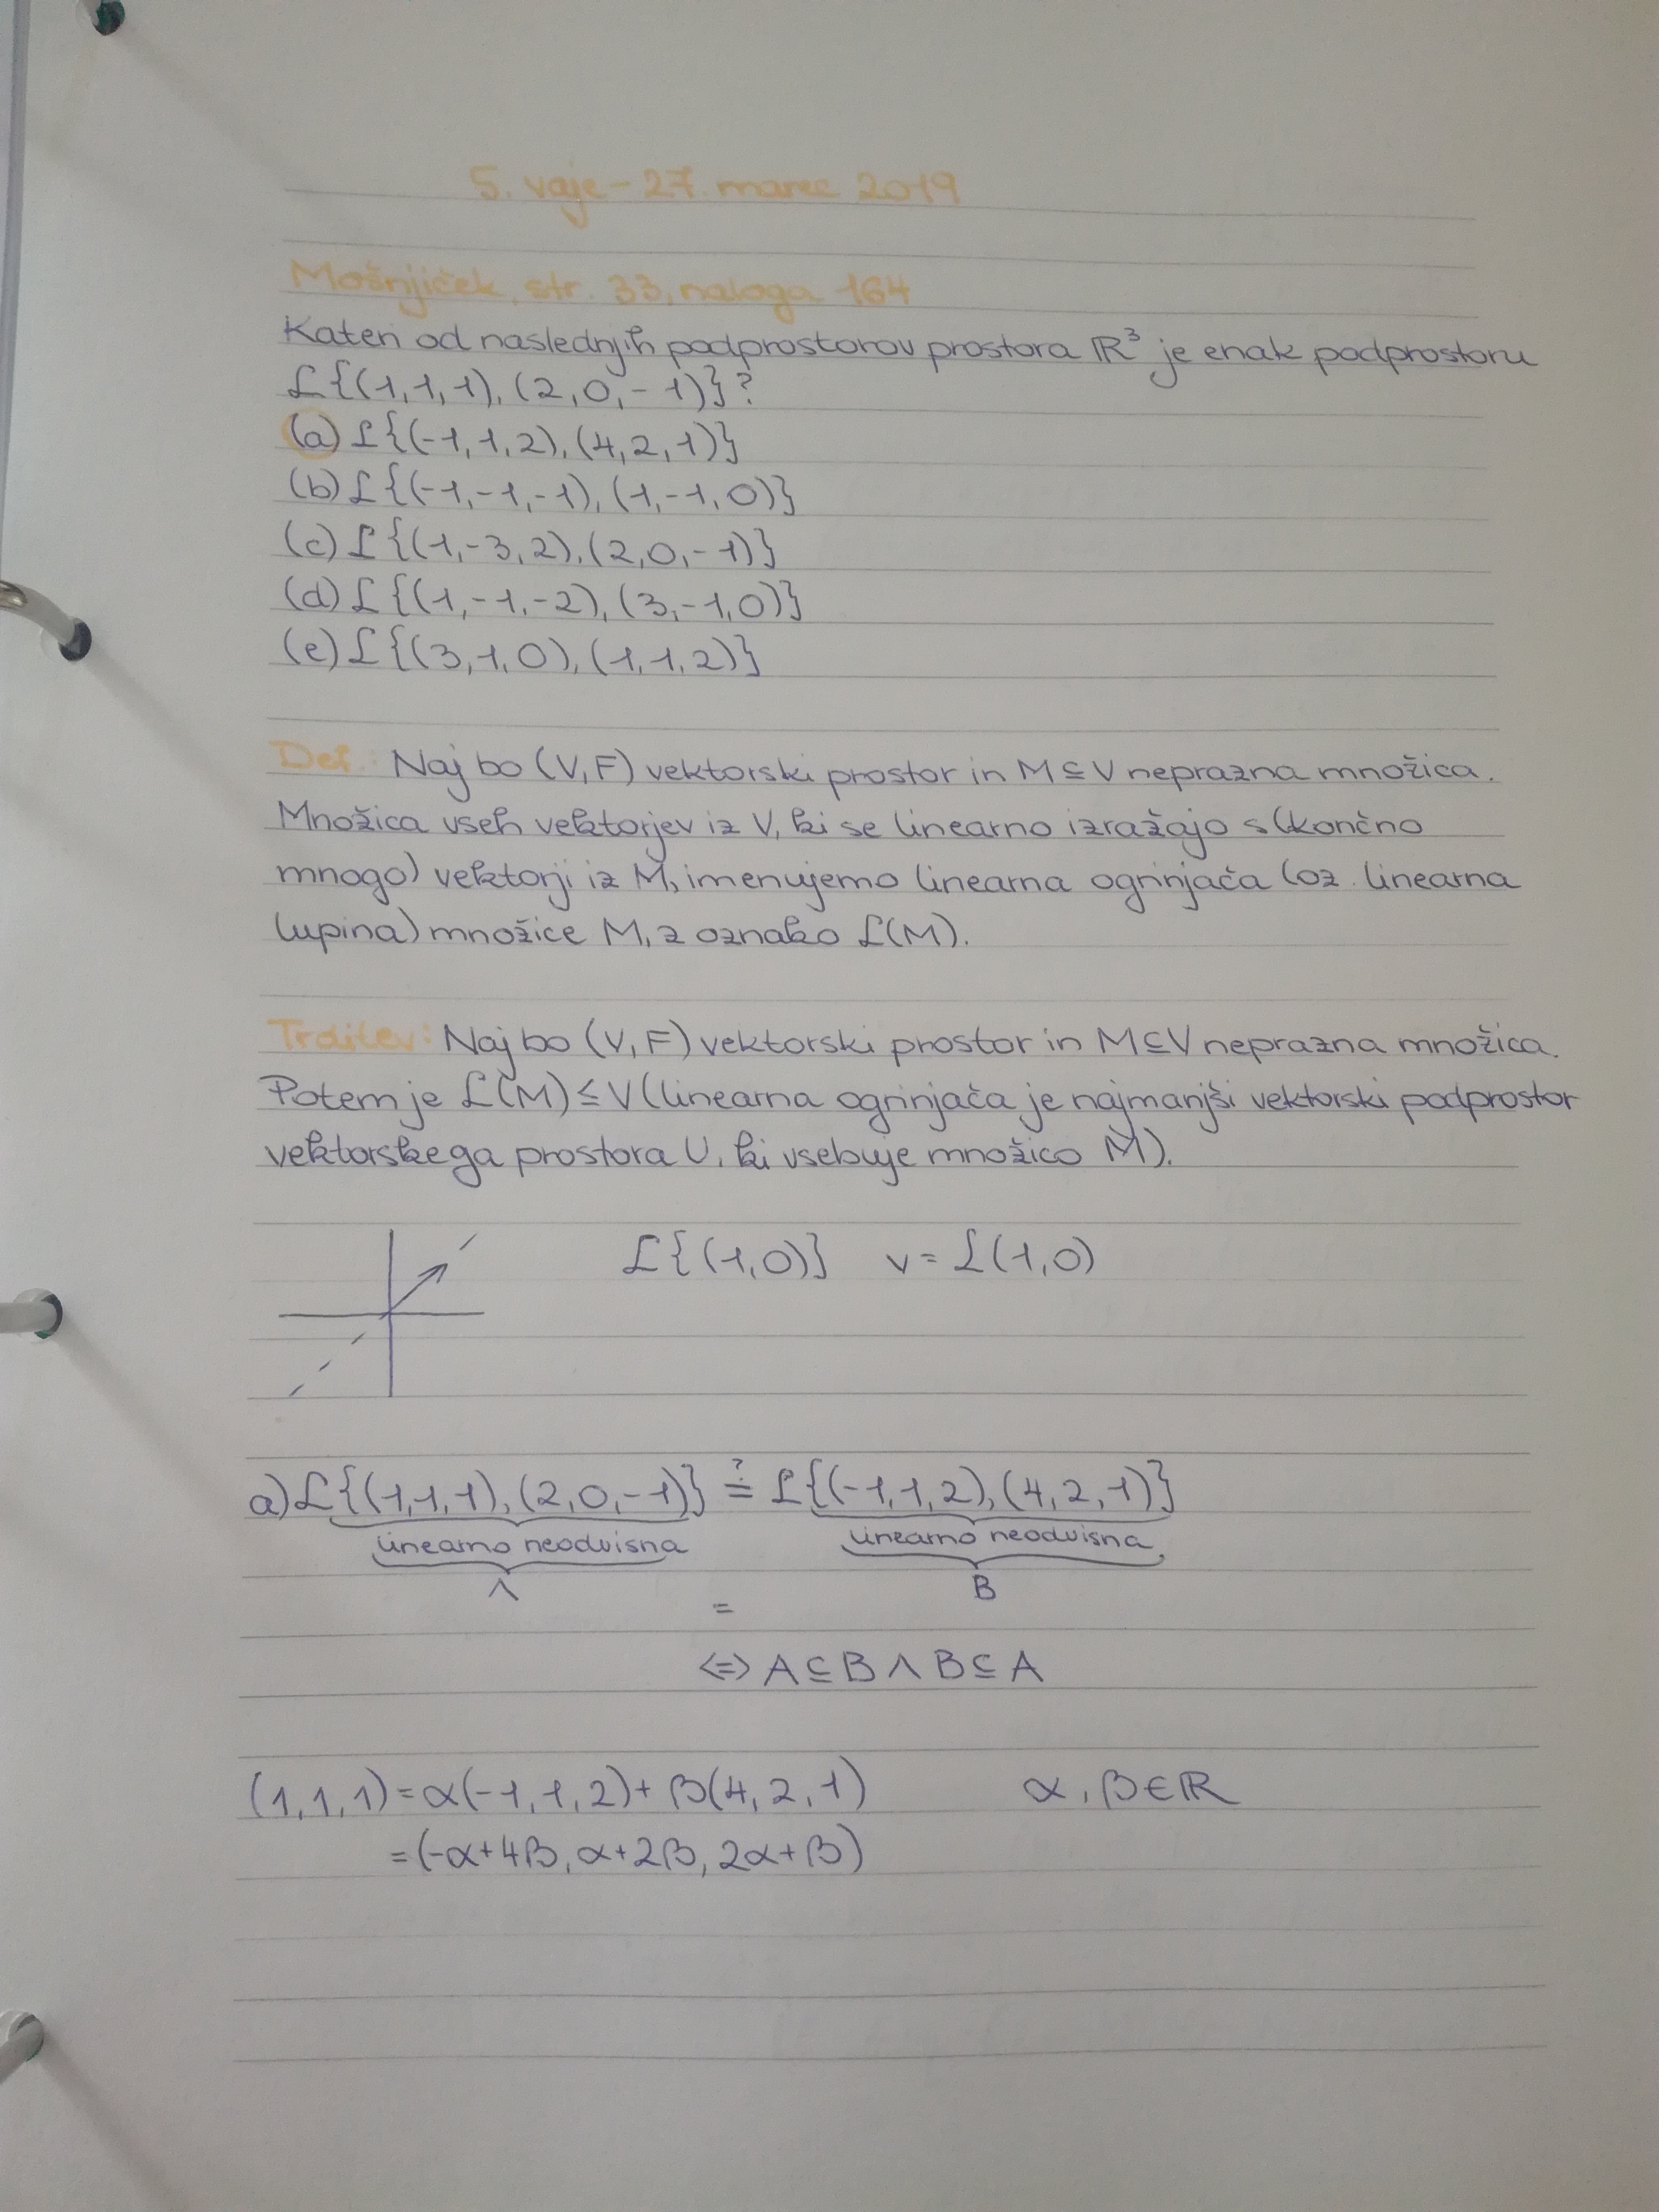 5. vaje - 27. marec 2019
Mošnjiček, str. 33, naloga 164
Kateri od naslednjih podprostorov prostora ℝ³ je enak podprostoru
ℒ{(1,1,1),(2,0,-1)}?
(a) ℒ{(-1,1,2),(4,2,1)}
(b) ℒ{(-1,-1,-1),(1,-1,0)}
(c) ℒ{(1,-3,2),(2,0,-1)}
(d) ℒ{(1,-1,-2),(3,-1,0)}
(e) ℒ{(3,1,0),(1,1,2)}
Def.: Naj bo (V,F) vektorski prostor in M⊆V neprazna množica.
Množica vseh vektorjev iz V, ki se linearno izražajo s (končno
mnogo) vektorji iz M, imenujemo linearna ogrinjača (oz. linearna
lupina) množice M, z oznako ℒ(M).
Trditev: Naj bo (V,F) vektorski prostor in M⊆V neprazna množica.
Potem je ℒ(M)≤V (linearna ogrinjača je najmanjši vektorski podprostor
vektorskega prostora V, ki vsebuje množico M).
ℒ{(1,0)} v=ℒ(1,0)
a) ℒ{(1,1,1),(2,0,-1)} ≟ ℒ{(-1,1,2),(4,2,1)}
linearno neodvisna linearno neodvisna
A B
=
⇔ A⊆B ∧ B⊆A
(1,1,1)=α(-1,1,2)+β(4,2,1) α,β∈ℝ
=(-α+4β, α+2β, 2α+β)